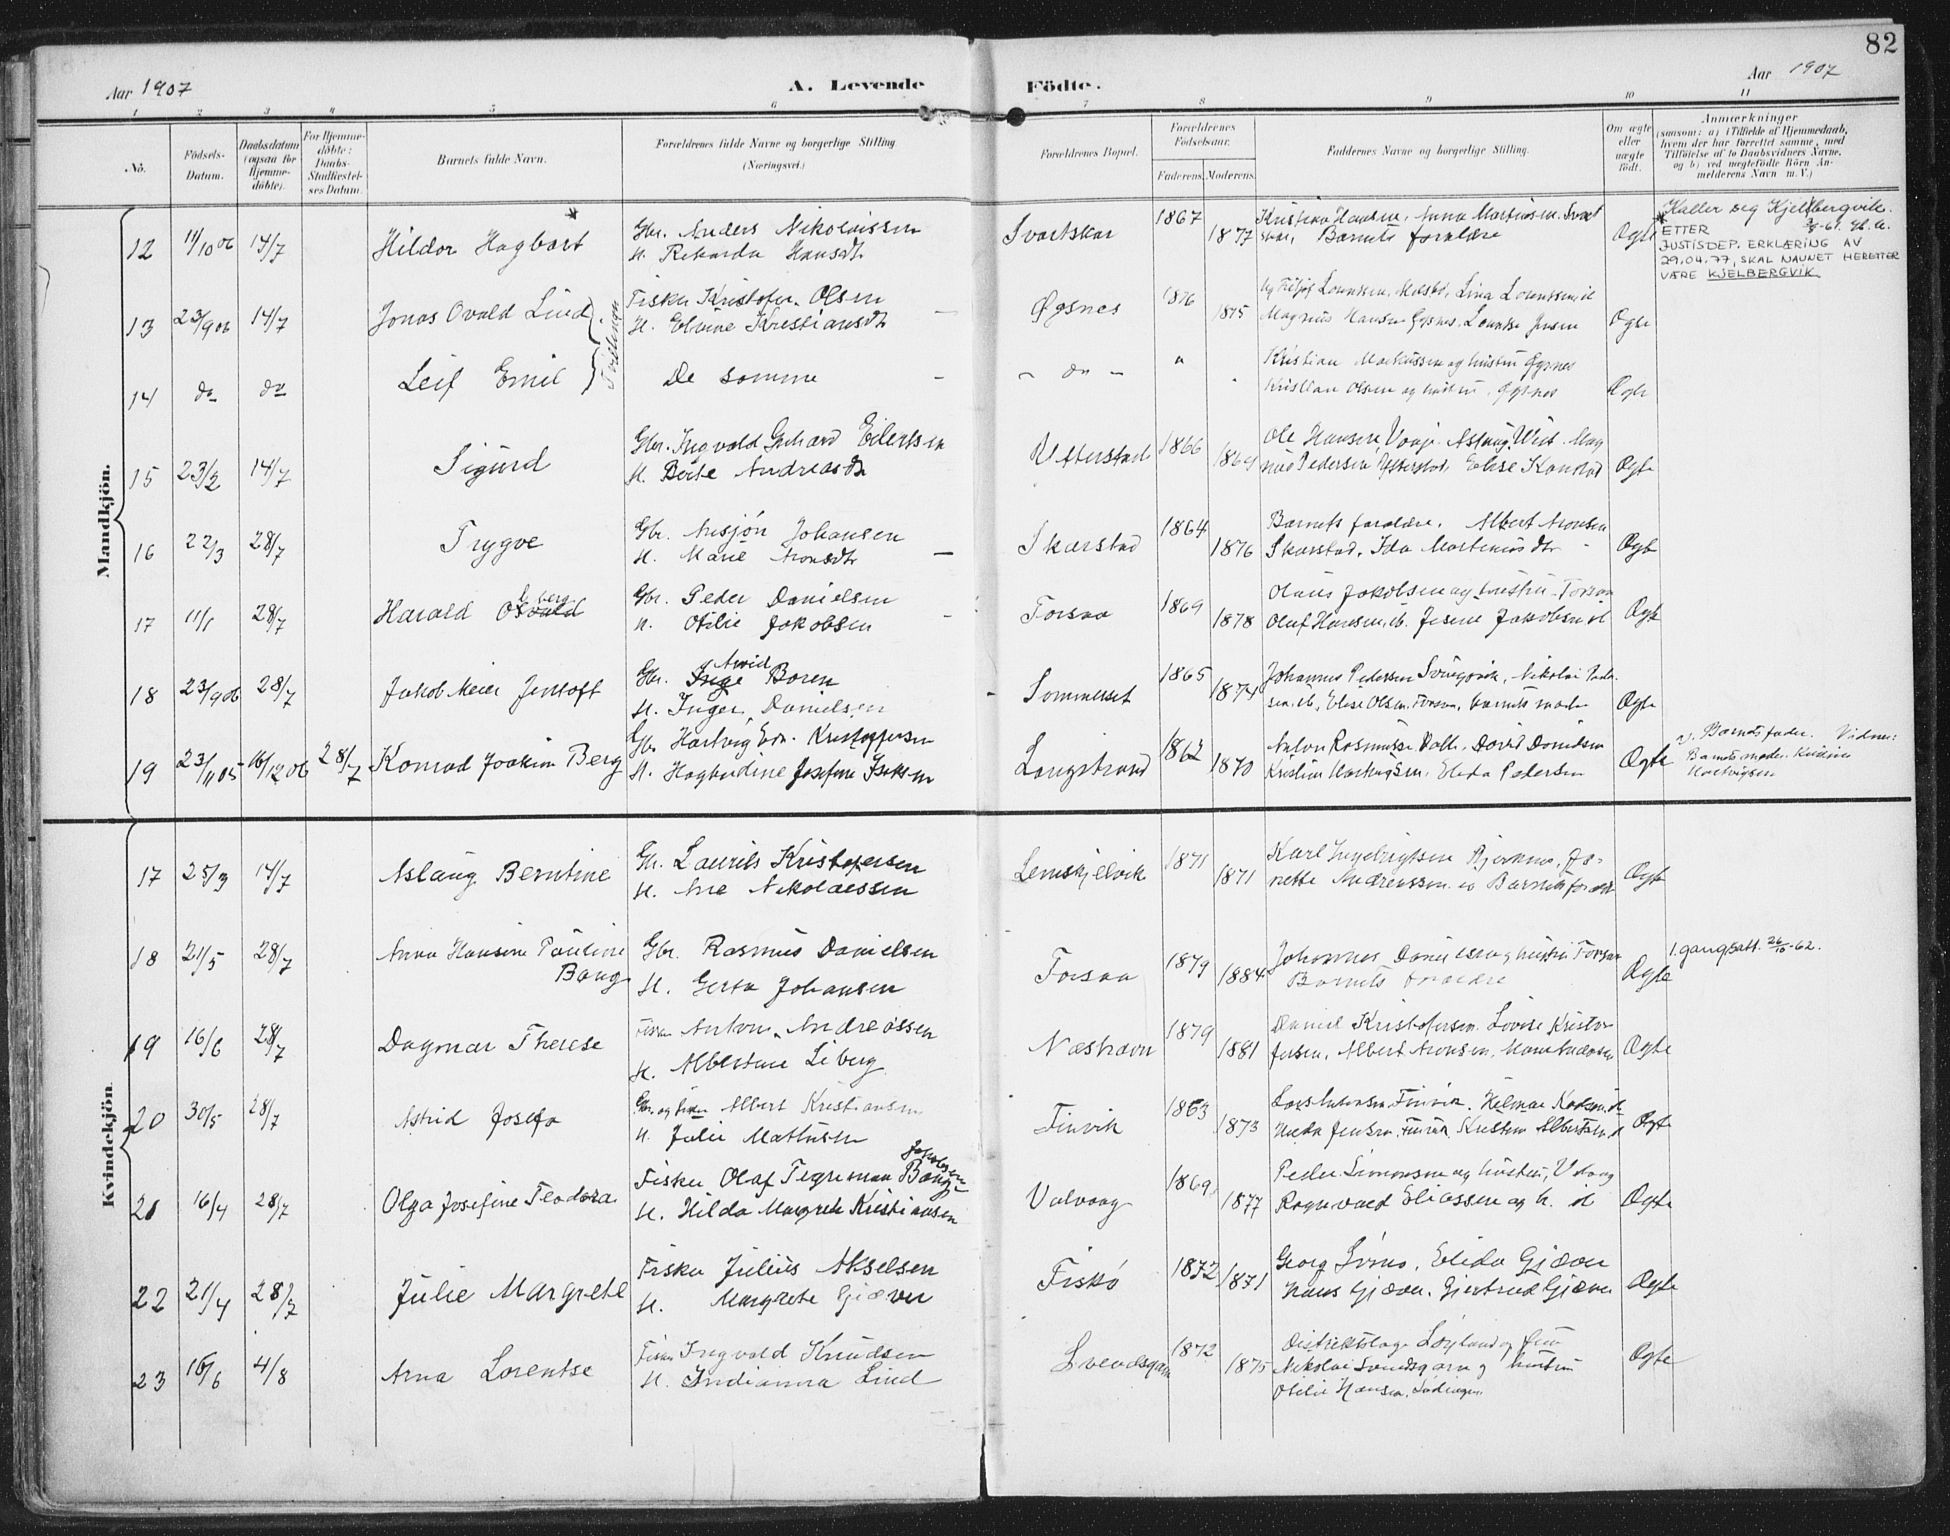 82
Aar 1907
A. Levende
Födte.
Aar 1907
1 2 3 4 5 6 7 8 9 10 11
No.
Födsels-
Datum.
Daabsdatum
(ogsaa for
Hjemme-
döbte).
For Hjemme-
döbte:
Daabs-
Stadfæstel-
ses Datum.
Barnets fulde Navn.
Forældrenes fulde Navne og borgerlige Stilling
(Næringsvei.)
Forældrenes Bopæl.
Forældrenes
Födselsaar.
Faderens. Moderens.
Faddernes Navne og borgerlige Stilling.
Om ægte
eller
uægte
födt.
Anmærkninger
(saasom: a) i Tilfælde af Hjemmedaab,
hvem der har forrettet samme, med
Tilföielse af to Daabsvidners Navne,
og b) ved uægtefödte Börn An-
melderens Navn m. V.)
Mandkjön.
12 11/10 06 14/7 Hildor Hagbart * Gbr. Anders Nikolaissen
H. Rikarda Hansdtr
Svartskar 1867 1877 Kristian Hansen, Anna Martinsen Svart
skar, Barnets forældre
Ægte
* Kaller seg Kjelbergvik.
ETTER
JUSTISDEP. ERKLÆRING AV
29.04.77, SKAL NAVNET HERETTER
VÆRE KJELBERGVIK
13 23/9 06 14/7 Jonas Ovald Lind Fisker Kristofer Olsen
H. Elvine Kristiansdtr
Tvillinger
Øgsnes 1876 1875
Magnus Hansen Øgsnes, Lorentse Jensen
Ægte
14 do do Leif Emil De samme
- do - "
Kristian Markussen og hustru Øgsnes
Kristian Olsen og hustru, Øgsnes
Ægte
15 23/2 14/7 Sigurd Gbr. Ingvald Gerhard Eilertsen
H. Berte Andreasdtr
Utterstad 1866 1869 Ole Hansen Vaage, Aslaug Wist, Mag
nus Pedersen Ytterstad, Elise Kanstad
Ægte
16 22/3 28/7 Trygve Gbr. Arnsjön Johansen
H. Marie Aronsdtr
Skarstad 1864 1876 Barnets forældre, Albert Aronsen
Skarstad, Ida Martinusdtr
Ægte
17 11/1 28/7 Harald Osvald Gbr. Peder Danielsen
H. Otilie Jakobsen
Forsaa 1869 1878 Olaus Jakobsen og hustru Forsaa
Olaf Hansen, ib. Jesine Jakobsen
Ægte
18 23/9 06 28/7 Jakob Meier Jentoft Gbr. Inge Arvid Boren
H. Inger Danielsen
Sommerset 1865 1874 Johannes Pedersen Svingvik, Nikolai Peder-
sen ib, Elise Olsen Forsaa, barnets moder
Ægte
19 23/11 05 16/12 06 28/7 Konrad Joakim Berg Gbr. Hartvig Edv. Kristoffersen
H. Hagbardine Josefine Isaksen
Langstrand 1862 1870 Anton Rasmussen Valle, David Davidsen
Kristine Hartvigsen, Elida Pedersen
Ægte
v. Barnets fader. Vidner:
Barnets moder. Kristine
Hartvigsen
Kvindekjön.
17 25/3 14/7 Aslaug Berntine Gbr. Laurits Kristofersen
H. Ane Nikolaessen
Leniskjelvik 1871 1871 Karl Ingebrigtsen
Andreassen Barnets forældre
Ægte
18 21/5 28/7 Anna Hansine Pauline
Bang
Gbr. Rasmus Danielsen
H. Gerta Johansen
Forsaa 1879 1884 Johannes Danielsen og hustru Forsaa
Barnets forældre
Ægte
1. gangsatt. 26/10-62.
19 16/6 28/7 Dagmar Therese Fisker Anton Andreassen
H. Albertine Liberg
Næshavn 1879 1881 Daniel Kristofersen, Lovise Kristo-
fersen, Albert Aronsen, Marie Andersen
Ægte
20 30/5 28/7 Astrid Josefa Gbr. og fisker Albert Kristiansen
H. Julie Mathisen
Finvik 1863 1873 Lars Antonsen Finvik, Hilmar Karlsen
Jensen Finvik, Kristine Albertsen
Ægte
21 16/4 28/7 Olga Josefine Teodora Fisker Olaf Tegneman Bang Jakobsen
H. Hilda Margrete Kristiansen
Valvaag 1869 1877 Peder Simonsen og hustru, Valvaag
Ragnvald Eliassen og h. d
Ægte
22 21/4 28/7 Julie Margrete Fisker Julius Akselsen
H. Margrete Giæver
Fiskö 1872 1871 Georg Svino, Elida Gjæver
Hans Gjæver, Gjertrud Gjæver
Ægte
23 16/6 4/8 Arna Lorentse Fisker Ingvald Knudsen
H. Indianna Lind
Svendsgam 1872 1875 Distriktslæge Løgland og frue
Nikolai Svendsgam og hustru
Otilie Hansen, Lødingen
Ægte